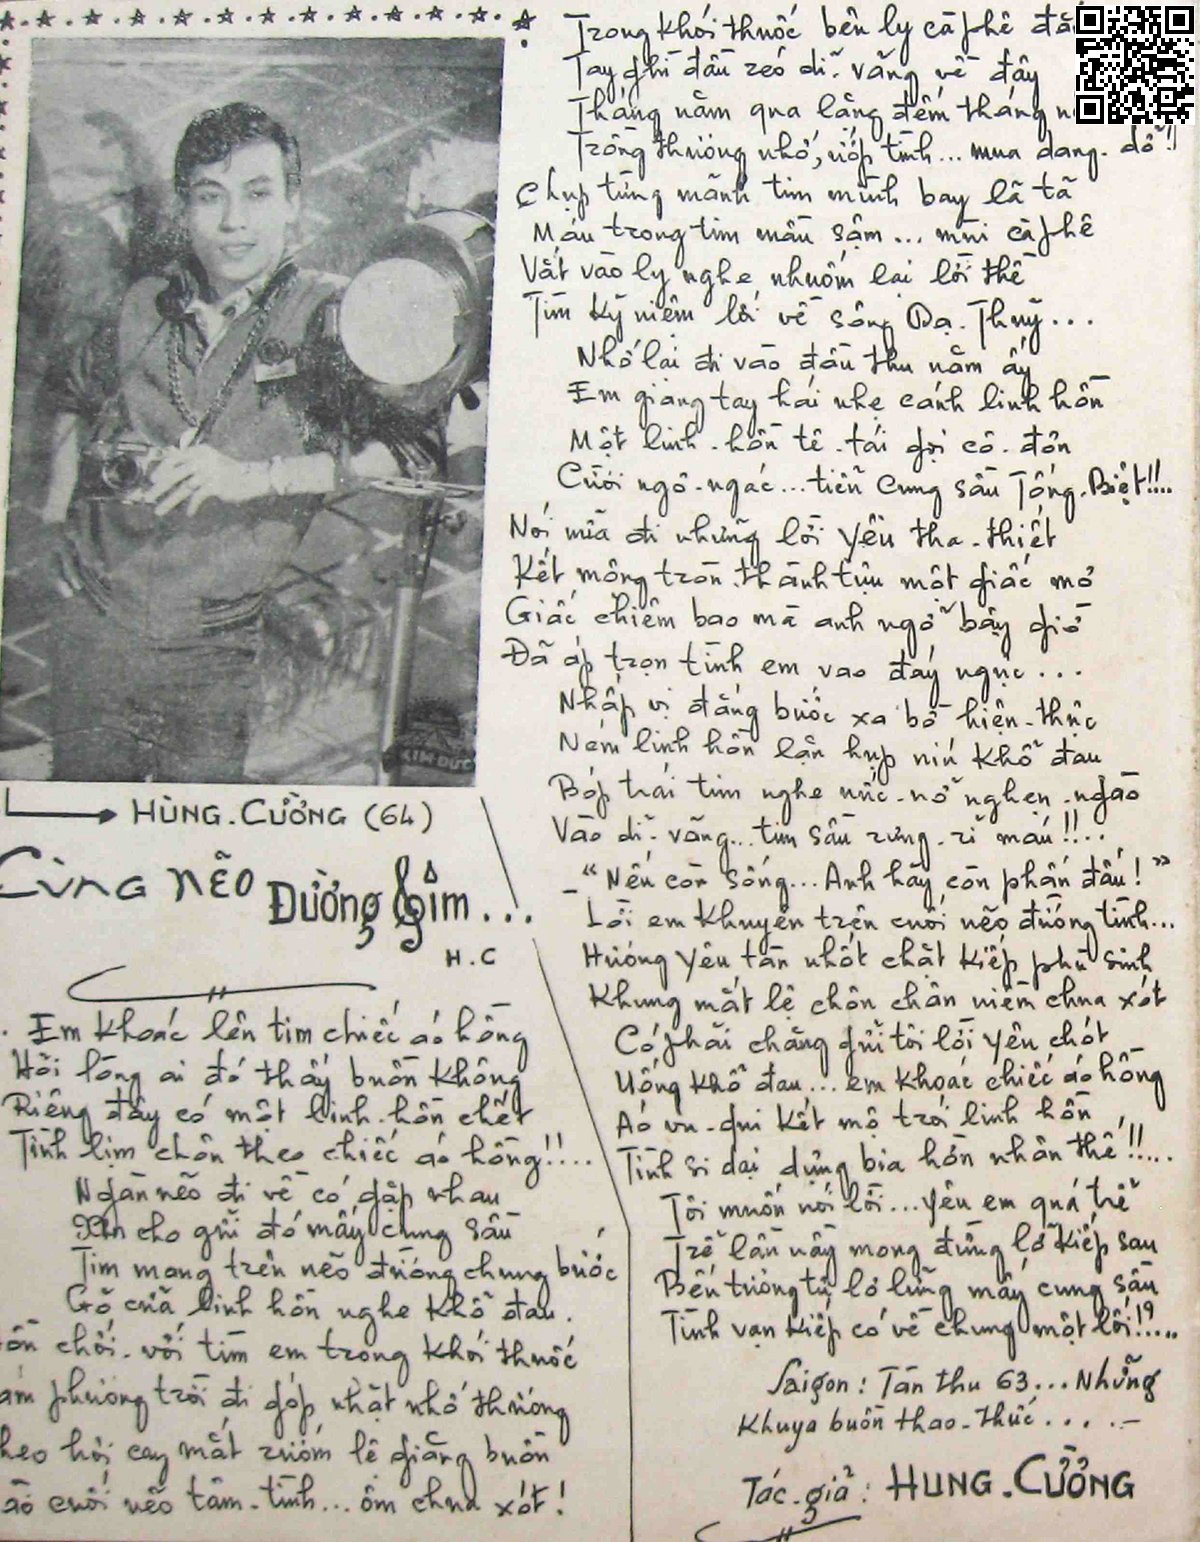 KIM ĐỨC
HÙNG.CƯỜNG (64)
Cùng nẽo Đường Gim...
H.C
Em khoác lên tim chiếc áo hồng
Hỏi lòng ai đó thấy buồn không
Riêng đây có một linh-hồn chết
Tình lịm chôn theo chiếc áo hồng!!...
Ngàn nẽo đi về có gặp nhau
Xin cho gửi đó mấy cung sầu
Tim mang trên nẽo đường chung bước
Gõ cửa linh hồn nghe khổ đau.
ồn chới-với tìm em trong khói thuốc
ám phương trời đi góp nhặt nhớ thương
heo hơi cay mắt rướm lệ giăng buồn
ào cuối nẽo tâm-tình... ôm chua xót!
Trong khói thuốc bên ly cà phê đắ
Tay ghì đầu réo dĩ-vãng về đây
Tháng năm qua lẳng đếm tháng n
Trồng thương nhớ, ướp tình... mưa dang-dở!
Chụp từng mãnh tim mình bay lã tã
Máu trong tim mầu sậm... mùi cà phê
Vắt vào ly nghe nhuốm lại lời thề
Tìm kỷ niệm lối về sông Dạ-Thuỷ...
Nhớ lại đi vào đầu thu năm ấy
Em giang tay hái nhẹ cánh linh hồn
Một linh-hồn tê-tái gọi cô-đơn
Cười ngô-ngác... tiễn cung sầu Tống-Biệt!!..
Nói mữa đi những lời yêu tha-thiết
Kết mộng tròn thành tựu một giấc mơ
Giấc chiêm bao mà anh ngỡ bây giờ
Đã áp trọn tình em vao đáy ngực...
Nhấp vị đắng bước xa bờ hiện-thực
Ném linh hồn lặn hụp nín khổ đau
Bóp trái tim nghe nức-nở nghẹn-ngào
Vào dĩ-vãng... tim sầu rưng-rĩ máu!!..
-"Nếu còn sống... Anh hãy còn phấn đấu!"
Lời em khuyên trên cuối nẽo đường tình...
Hướng yêu tàn nhốt chặt kiếp phù sinh
Khung mắt lệ chôn chân niềm chua xót
Có phải chăng gửi tôi lời yêu chót
Uống khổ đau... em khoác chiếc áo hồng
Áo vu-qui kết mộ trói linh hồn
Tình si dại dựng bia hờn nhân thế!!...
Tôi muốn nói lời... yêu em quá trễ
Trễ lần nầy mong đừng lỡ kiếp sau
Bến tương tự lơ lửng mấy cung sầu
Tình vạn kiếp có về chung một lối!?...
Saigon: Tàn thu 63... Những
khuya buồn thao-thức.....-
Tác-giả: HÙNG.CƯỜNG